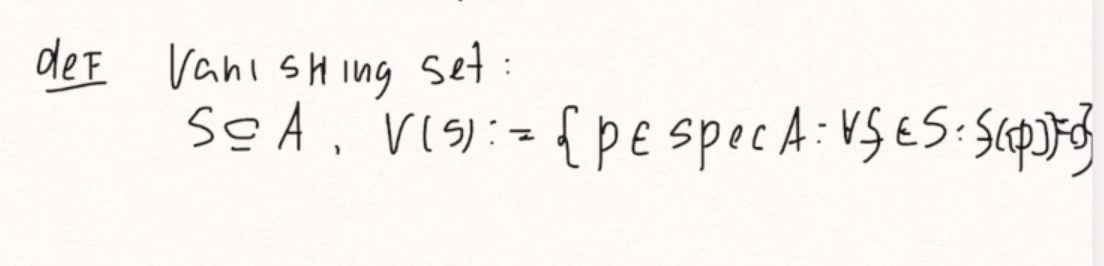 def Vanishing set:
S ⊆ A, V(S) := { p ∈ spec A : ∀f ∈ S : f([p])=0}